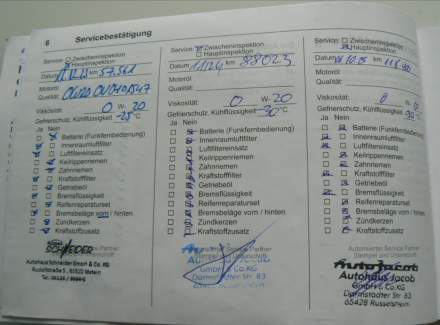 6 Servicebestätigung
Service: ☐ Zwischeninspektion
Hauptinspektion
Datum km 57.561
Motoröl
Qualität:
Viskosität: 0 W- 20
Gefrierschutz, Kühlflüssigkeit -25°C
Ja Nein
Batterie (Funkfernbedienung)
Innenraumluftfilter
Luftfiltereinsatz
Keilrippenriemen
Zahnriemen
Kraftstofffilter
Getriebeöl
Bremsflüssigkeit
Reifenreparaturset
Bremsbeläge vorn / hinten
Zündkerzen
Kraftstoffzusatz
Autohaus Schneider GmbH & Co. KG
Service: ☐ Zwischeninspektion
Hauptinspektion
Datum 11/24 km 88023
Motoröl
Qualität:
Viskosität: 0 W- 20
Gefrierschutz, Kühlflüssigkeit -30°C
Ja Nein
Batterie (Funkfernbedienung)
Innenraumluftfilter
Luftfiltereinsatz
Keilrippenriemen
Zahnriemen
Kraftstofffilter
Getriebeöl
Bremsflüssigkeit
Reifenreparaturset
Bremsbeläge vorn / hinten
Zündkerzen
Kraftstoffzusatz
Autohaus Jacob
GmbH & Co.KG
Darmstädter Str. 83
Service: ☐ Zwischeninspektion
Hauptinspektion
Datum km
Motoröl
Qualität:
Viskosität: 0 W-
Gefrierschutz, Kühlflüssigkeit
Ja Nein
Batterie (Funkfernbedienung)
Innenraumluftfilter
Luftfiltereinsatz
Keilrippenriemen
Zahnriemen
Kraftstofffilter
Getriebeöl
Bremsflüssigkeit
Reifenreparaturset
Bremsbeläge vorn / hinten
Zündkerzen
Kraftstoffzusatz
Autorisierter Service Partner
Stempel und Unterschrift
Auto Jacob
Autohaus Jacob
GmbH & Co.KG
Darmstädter Str. 83
65428 Rüsselsheim